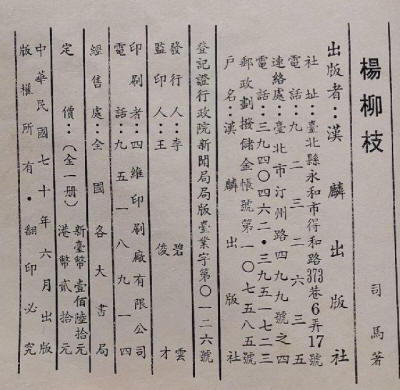 楊柳枝
司馬著
出版者：漢麟出版社
社址：臺北縣永和市得和路373巷6弄17號
電話：九二三二六三五
連絡處：臺北市汀州路四九九號之四
電話：三九四〇四六二・三九五一七二三
郵政劃撥儲金帳號第一〇七五八五號
戶名：漢麟出版社
登記證行政院新聞局局版臺業字第〇一二六號
發行人：李碧雲
監印人：王俊才
印刷者：四維印刷廠有限公司
電話：九五一八九一四
經售處：全國各大書局
定價：（全一册）新臺幣壹佰陸拾元
港幣貳拾元
中華民國七十年六月出版
版權所有・翻印必究